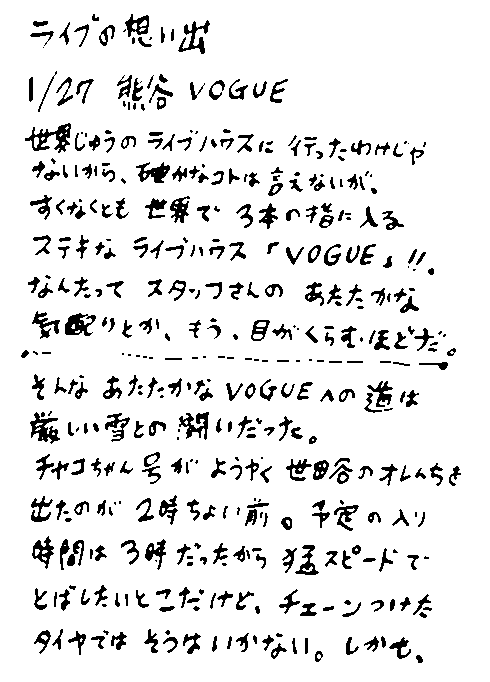 ライブの想い出
1/27 熊谷 VOGUE
世界じゅうのライブハウスに行ったわけじゃ
ないから、確かなコトは言えないが、
すくなくとも世界で3本の指に入る
ステキなライブハウス「VOGUE」!!。
なんたってスタッフさんのあたたかな
気配りとか、もう、目がくらむほどだ。
そんなあたたかなVOGUEへの道は
厳しい雪との闘いだった。
チャコちゃん号がようやく世田谷のオレんちを
出たのが2時ちょい前。予定の入り
時間は3時だったから猛スピードで
とばしたいとこだけど、チェーンつけた
タイヤではそうはいかない。しかも、